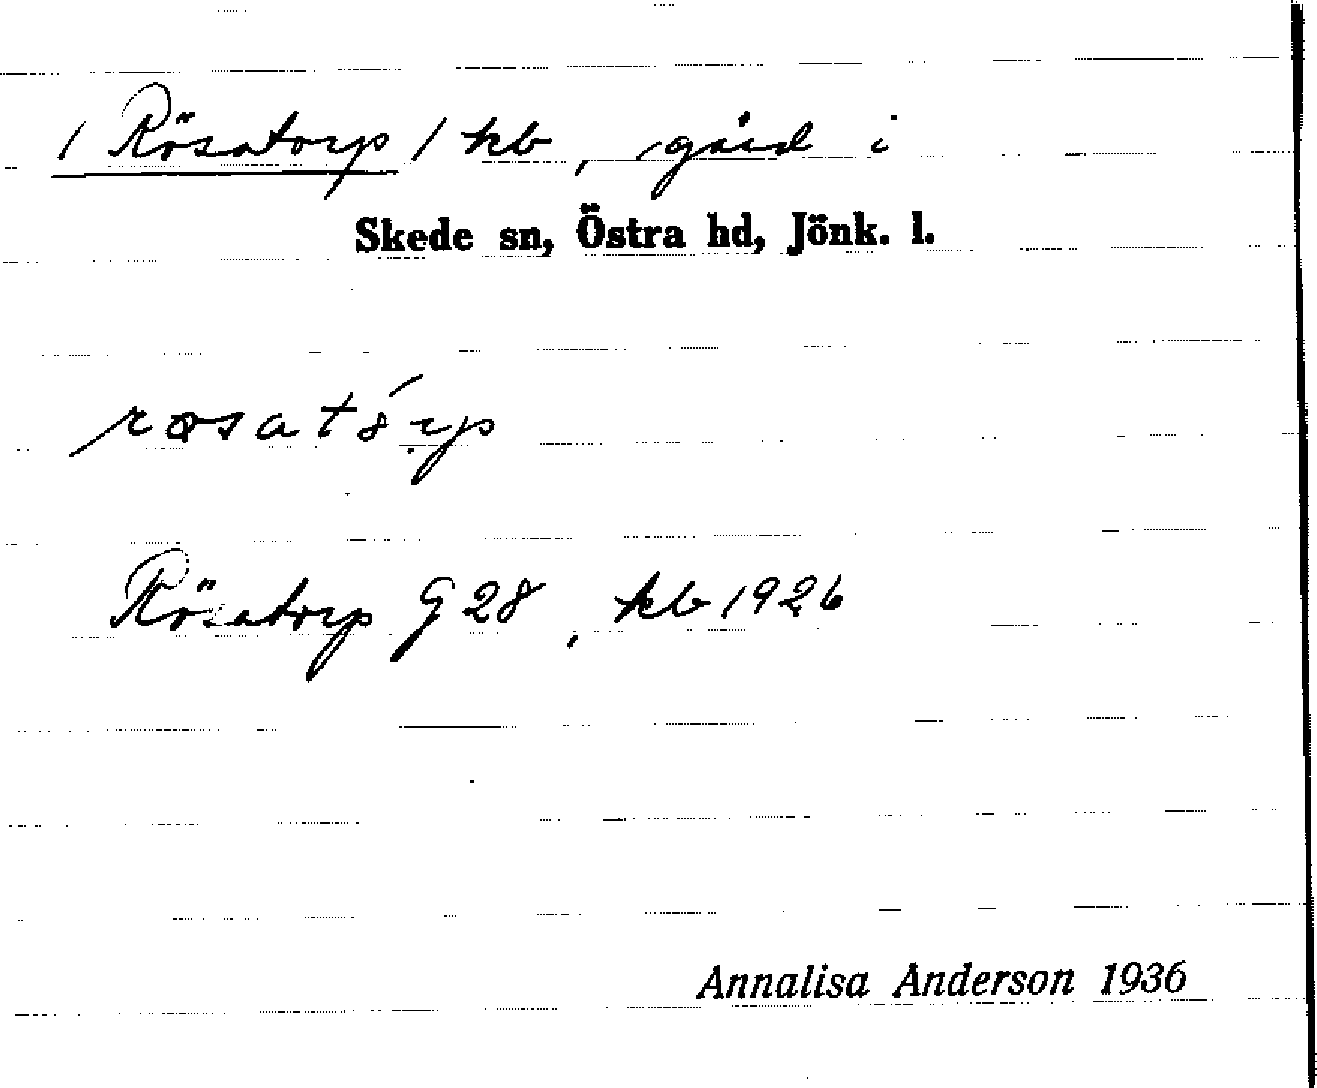 / Rösatorp / kb, gård i
Skede sn, Östra hd, Jönk. l.
Rösatorp G 28, kb 1926
Annalisa Anderson 1936